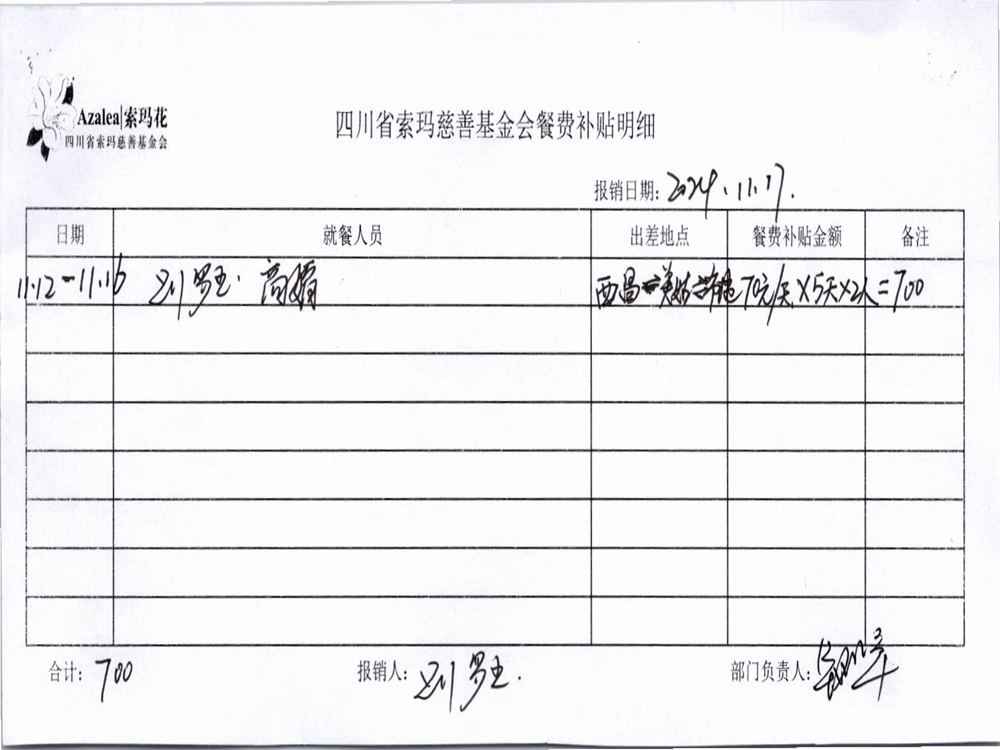 Azalea|索玛花
四川省索玛慈善基金会
四川省索玛慈善基金会餐费补贴明细
报销日期: 2024.11.17.
日期 就餐人员 出差地点 餐费补贴金额 备注
11.12-11.16 刘罗玉. 高 西昌 美姑 70元/天×5天×2人=700
合计: 700 报销人: 刘罗玉. 部门负责人: